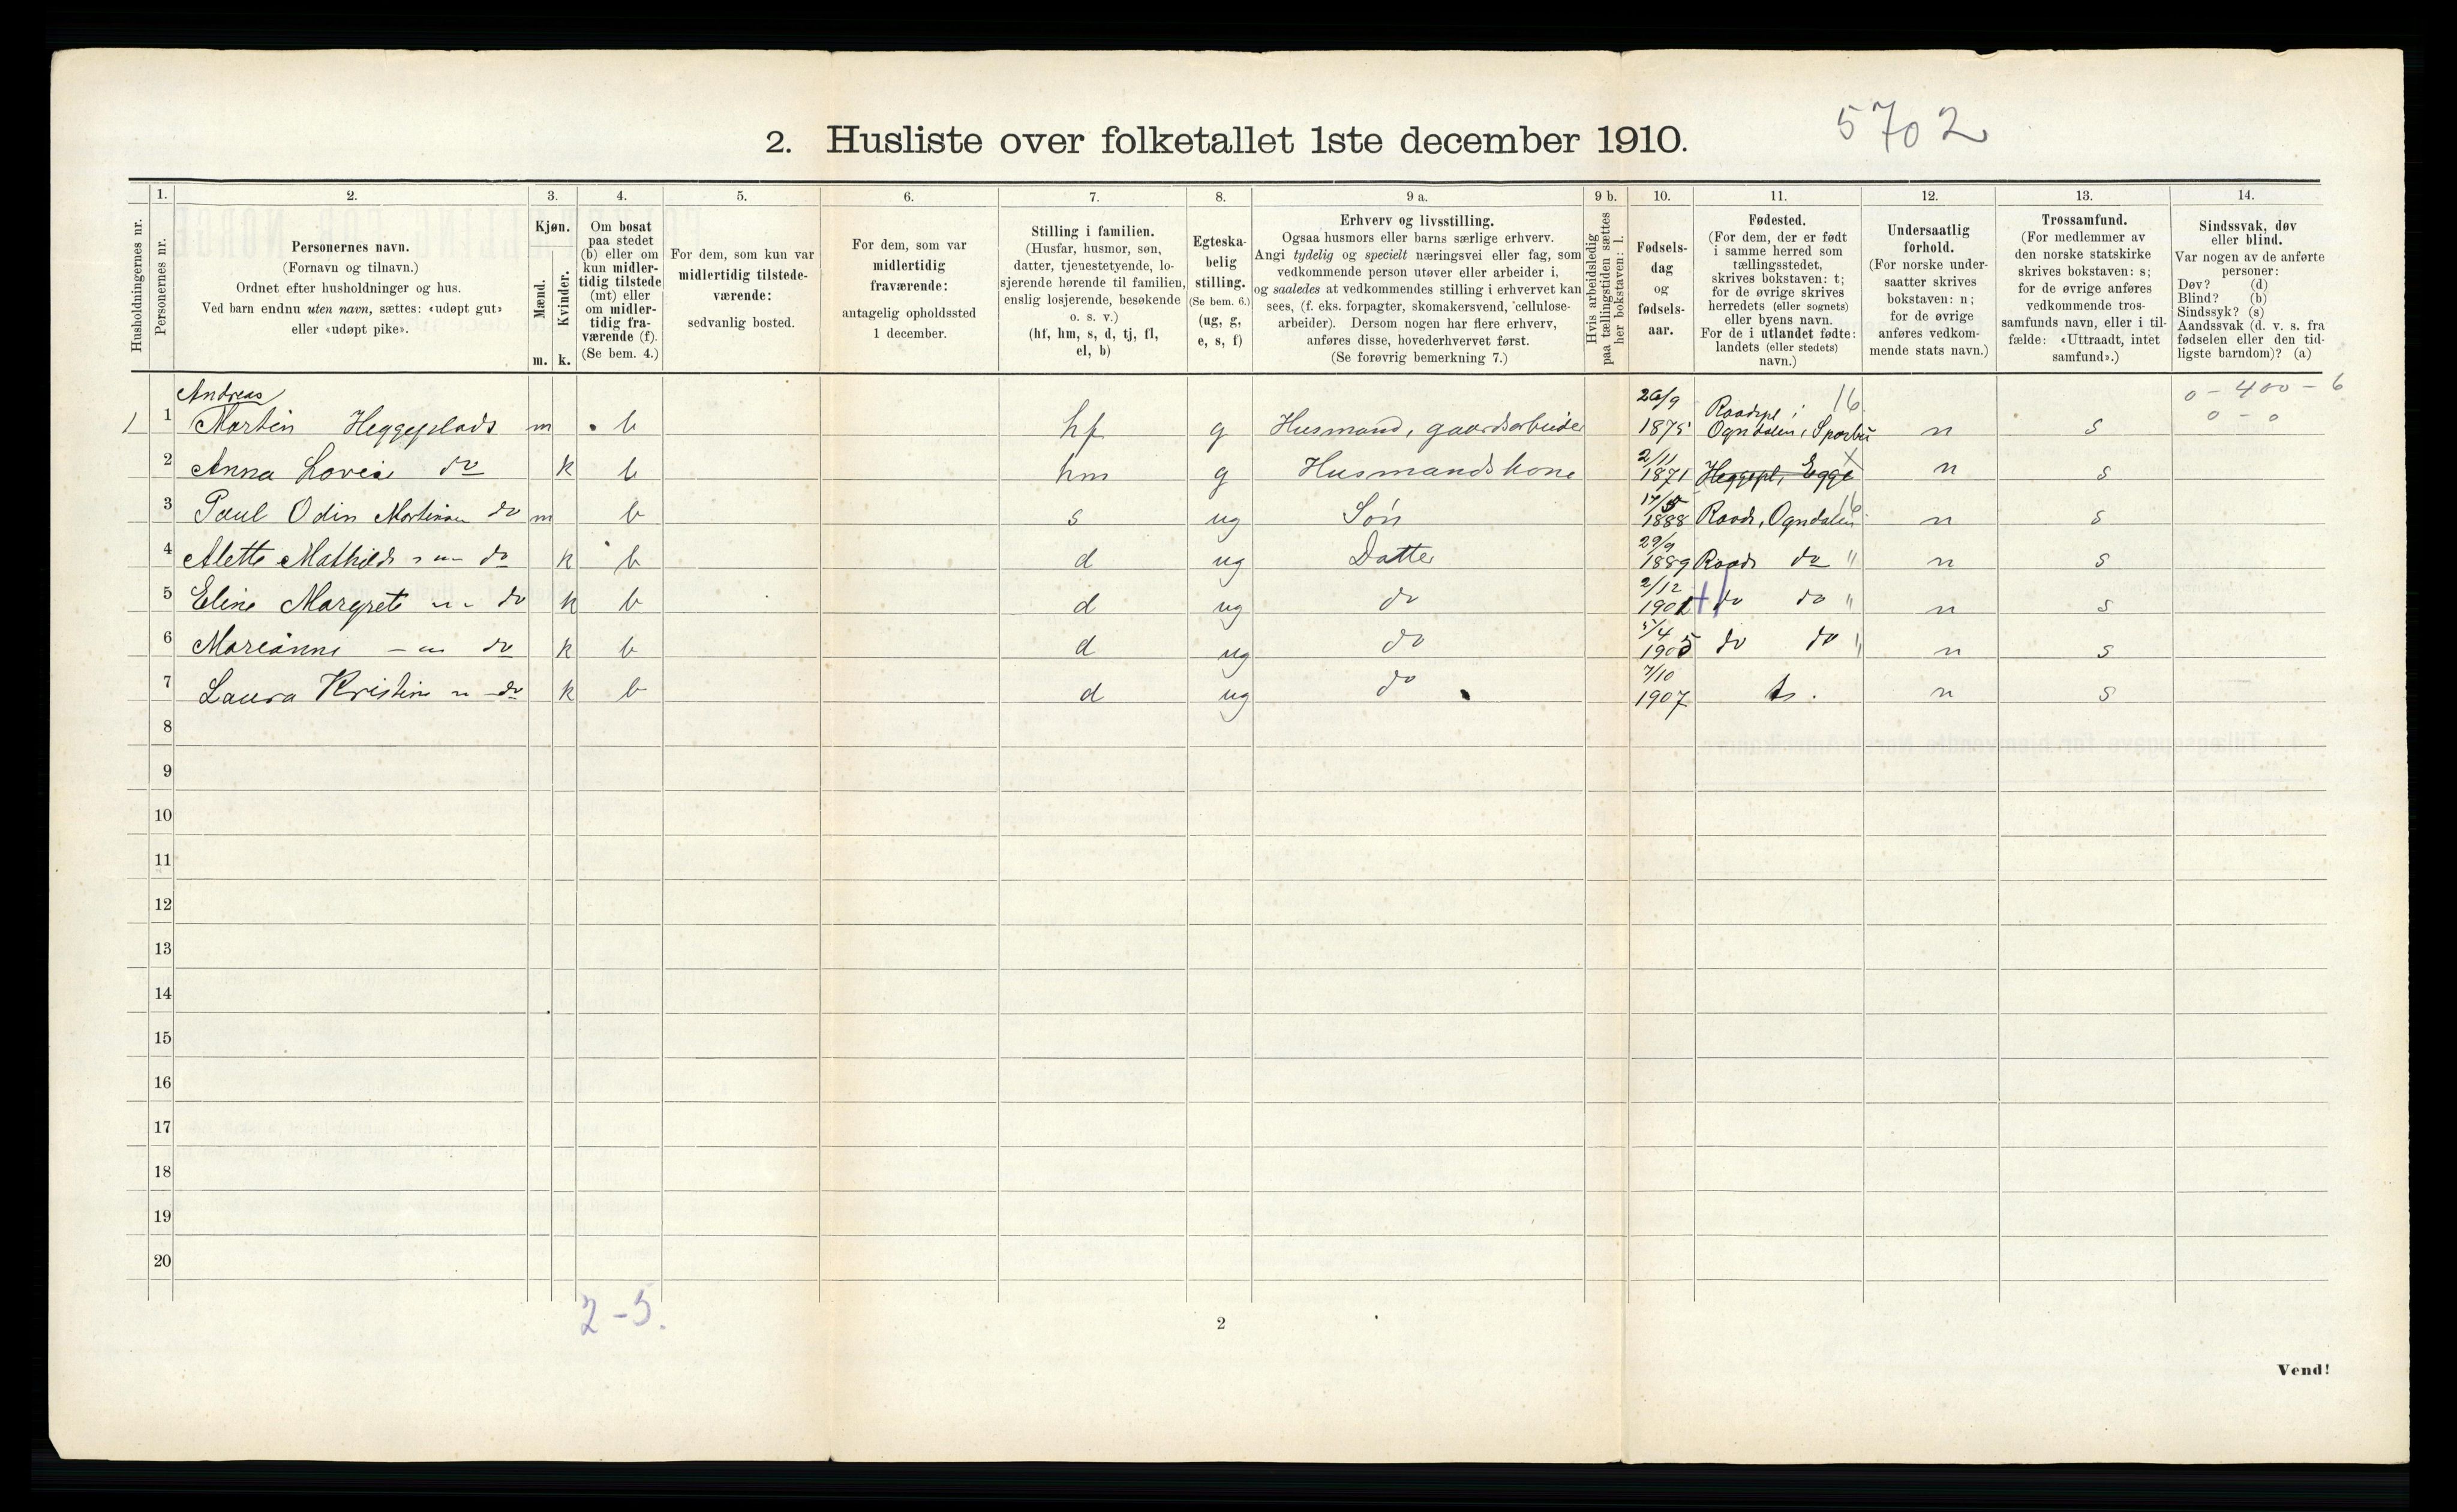 5702
2. Husliste over folketallet 1ste december 1910.
Husholdningernes nr.
1.
Personernes nr.
2.
Personernes navn.
(Fornavn og tilnavn.)
Ordnet efter husholdninger og hus.
Ved barn endnu uten navn, sættes: «udøpt gut»
eller «udøpt pike».
3.
Kjøn.
Mænd.
Kvinder.
m. k.
4.
Om bosat
paa stedet
(b) eller om
kun midler-
tidig tilstede
(mt) eller
om midler-
tidig fra-
værende (f).
(Se bem. 4.)
5.
For dem, som kun var
midlertidig tilstede-
værende:
sedvanlig bosted.
6.
For dem, som var
midlertidig
fraværende:
antagelig opholdssted
1 december.
7.
Stilling i familien.
(Husfar, husmor, søn,
datter, tjenestetyende, lo-
sjerende hørende til familien,
enslig losjerende, besøkende
o. s. v.)
(hf, hm, s, d, tj, fl,
el, b)
8.
Egteska-
belig
stilling.
(Se bem. 6.)
(ug, g,
e, s, f)
9 a.
Erhverv og livsstilling.
Ogsaa husmors eller barns særlige erhverv.
Angi tydelig og specielt næringsvei eller fag, som
vedkommende person utøver eller arbeider i,
og saaledes at vedkommendes stilling i erhvervet kan
sees, (f. eks. forpagter, skomakersvend, cellulose-
arbeider). Dersom nogen har flere erhverv,
anføres disse, hovederhvervet først.
(Se forøvrig bemerkning 7.)
9 b.
Hvis arbeidsledig
paa tællingstiden sættes
her bokstaven: l.
10.
Fødsels-
dag
og
fødsels-
aar.
11.
Fødested.
(For dem, der er født
i samme herred som
tællingsstedet,
skrives bokstaven: t;
for de øvrige skrives
herredets (eller sognets)
eller byens navn.
For de i utlandet fødte:
landets (eller stedets)
navn.)
12.
Undersaatlig
forhold.
(For norske under-
saatter skrives
bokstaven: n;
for de øvrige
anføres vedkom-
mende stats navn.)
13.
Trossamfund.
(For medlemmer av
den norske statskirke
skrives bokstaven: s;
for de øvrige anføres
vedkommende tros-
samfunds navn, eller i til-
fælde: «Uttraadt, intet
samfund».)
14.
Sindssvak, døv
eller blind.
Var nogen av de anførte
personer:
Døv? (d)
Blind? (b)
Sindssyk? (s)
Aandssvak (d. v. s. fra
fødselen eller den tid-
ligste barndom)? (a)
Andreas 26/9 Raadspl i 16 0 - 400 - 6
1 1 Martin Heggeplads m b hf g Husmand, gaardsarbeider 1875 Ogndalen, Sparbu n s 0 - 0
2 Anna Lovise do k b hm g Husmandskone 2/11 1871 Heggepl, Egge X n s
3 Paul Odin Martinsen do m b s ug Søn 17/5 1888 Raads, Ogndalen 16 n s
4 Alette Mathilde do k b d ug Datter 29/9 1889 Raads do " n s
5 Eline Margrete do k b d ug do 2/12 1901 do do " n s
6 Marianne do k b d ug do 5/4 1905 do do " n s
7 Laura Kristine do k b d ug do 7/10 1907 n s
8
9
10
11
12
13
14
15
16
17
18
19
20
2-5.
2
Vend!